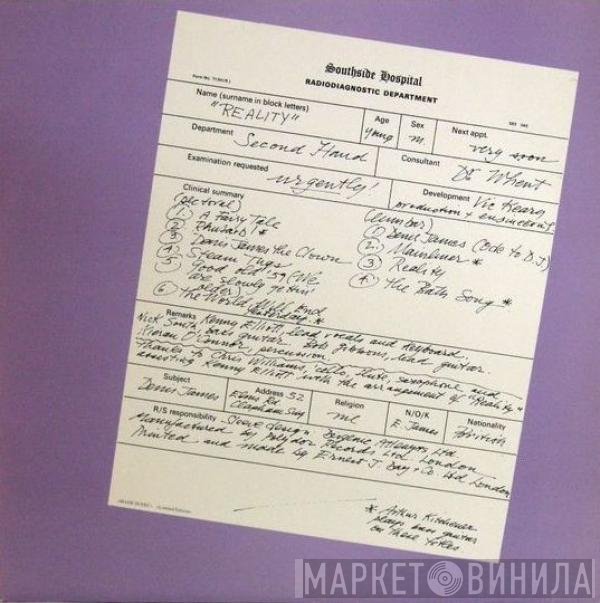 Southside Hospital
RADIODIAGNOSTIC DEPARTMENT
Name (surname in block letters)
"REALITY"
Age
young
Sex
m.
Next appt.
very soon
Department
Second Hand
Consultant
Dr Whent
Examination requested
urgently!
Development Vic Keary
production & engineering
Clinical summary
(pictorial)
1. A Fairy Tale
2. Rhubarb! *
3. Denis James the Clown
4. Steam Tugs
5. Good old '59 (We
are slowly gettin'
older)
6. The World Will End
Yesterday *
(lumbar)
1. Denis James (Ode to D.J)
2. Mainliner *
3. Reality
4. The Bath Song *
Remarks Kenny Elliott, lead vocals and keyboard.
Nick South, bass guitar. Bob Gibbons, lead guitar.
Kieran O'Connor, percussion.
Thanks to Chris Williams, 'cello, flute, saxophone and
assisting Kenny Elliott with the arrangement of "Reality"
Subject
Denis James
Address 52
Elms Rd
Clapham
Religion
nil
N/O/K
E. James
Nationality
British
R/S responsibility Sleeve design
Manufactured by Polydor Records Ltd London
Printed and made by Ernest J. Day & Co Ltd London
* Arthur Kitchener
plays bass guitar
on these titles
МАРКЕТ ВИНИЛА